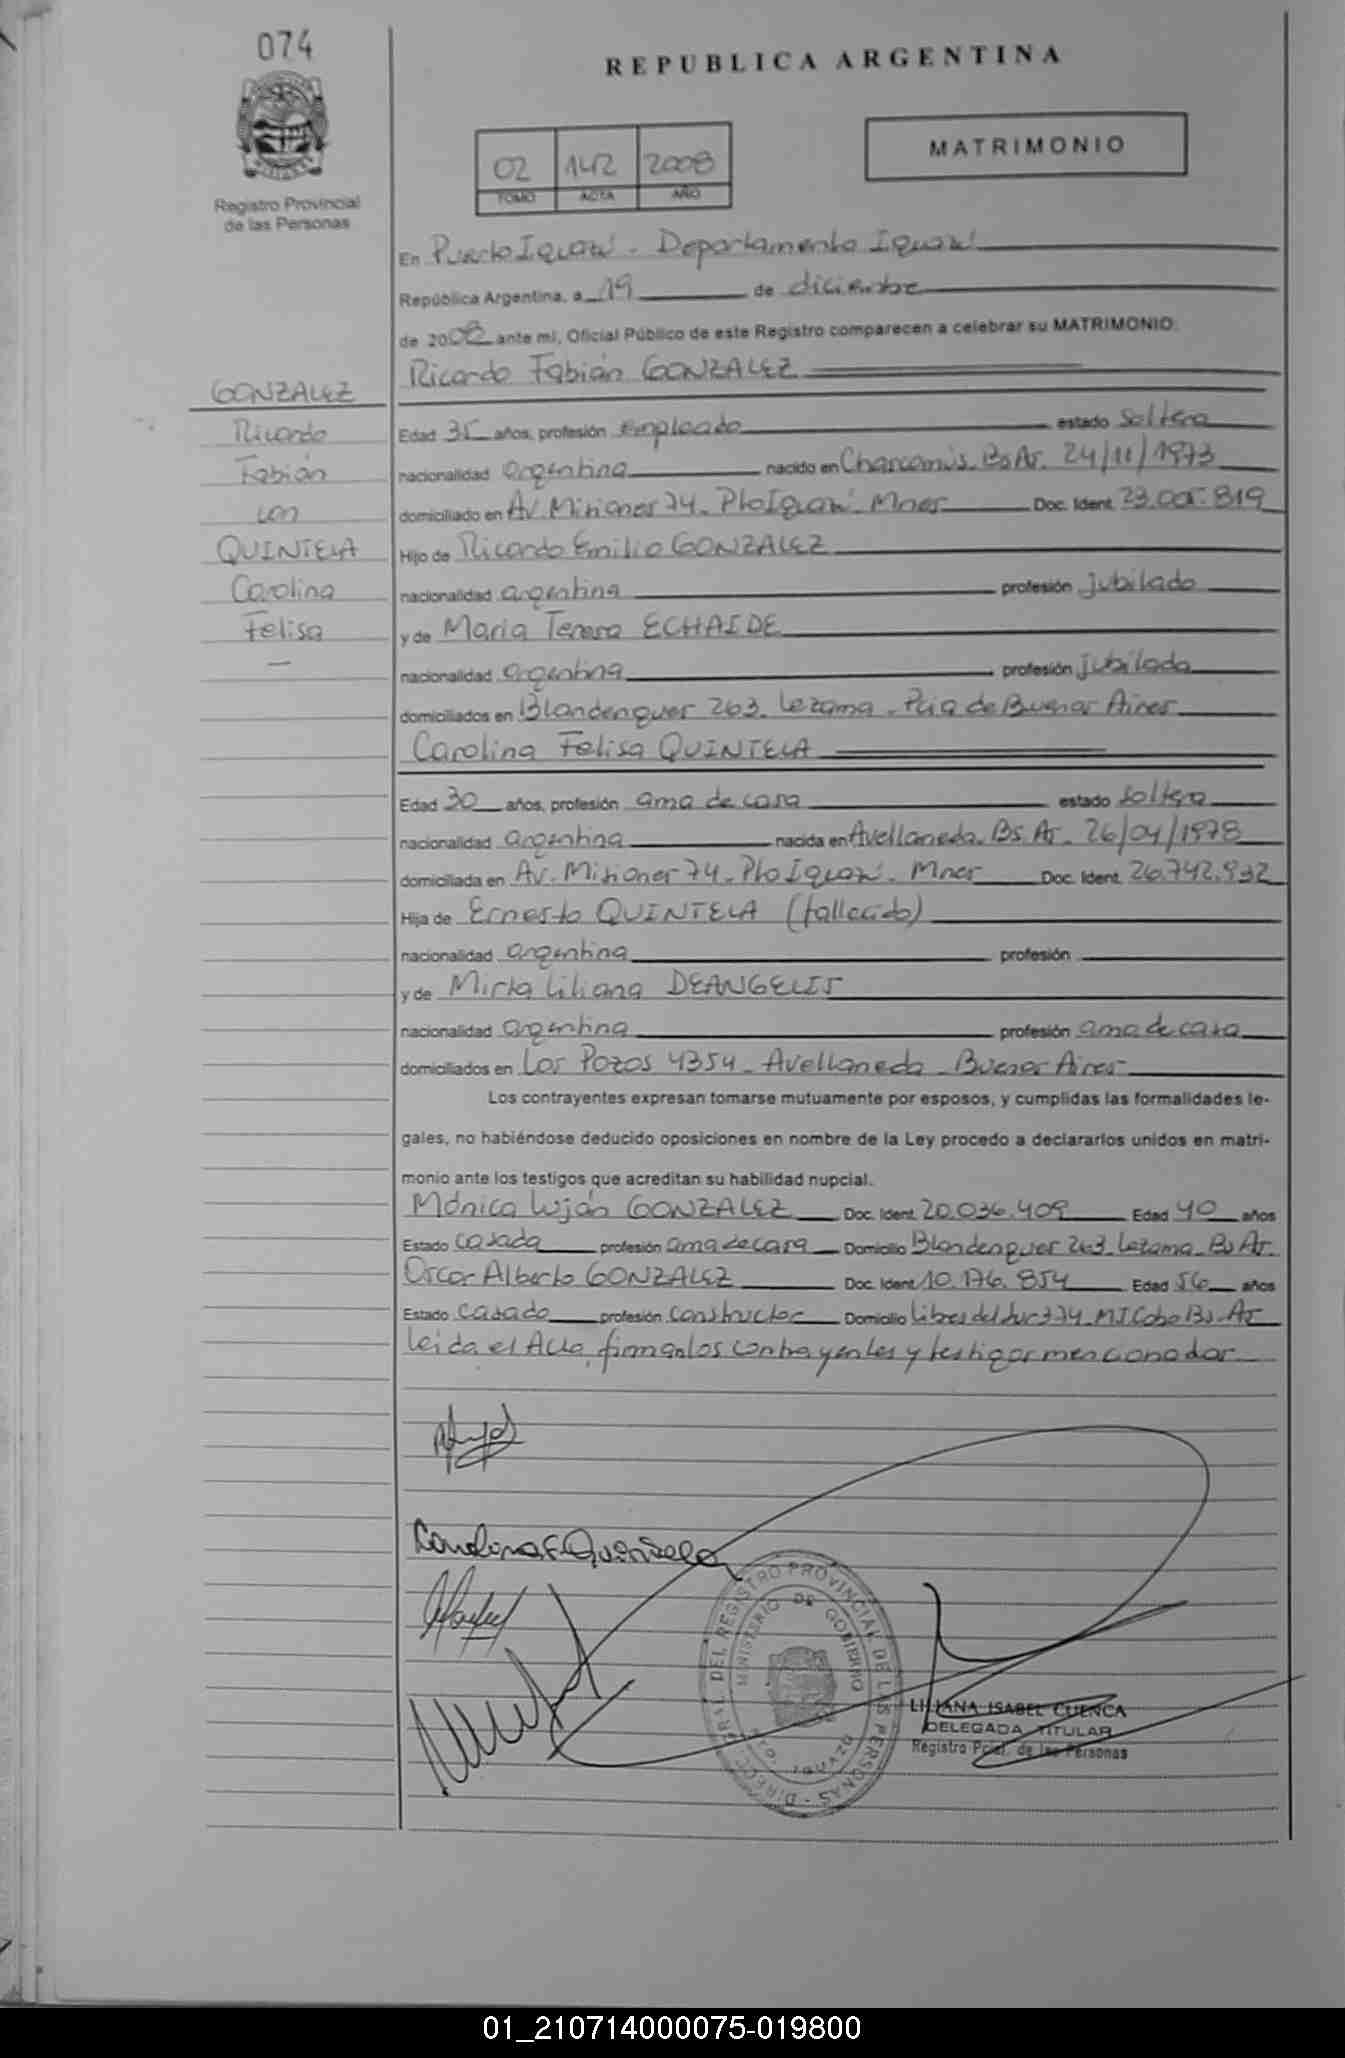 074
REPUBLICA ARGENTINA
MATRIMONIO
02 142 2008
TOMO ACTA AÑO
Registro Provincial
de las Personas
En Puerto Iguazú - Departamento Iguazú
República Argentina, a 19 de diciembre
de 2008 ante mí, Oficial Público de este Registro comparecen a celebrar su MATRIMONIO:
Ricardo Fabián GONZALEZ
GONZALEZ
Ricardo
Fabián
con
QUINTELA
Carolina
Felisa
—
Edad 35 años, profesión empleado estado soltero
nacionalidad argentina nacido en Chascomús. Bs Ar. 24/11/1973
domiciliado en Av. Misiones 74 - Pto Iguazú. Mnes Doc. Ident. 23.005.819
Hijo de Ricardo Emilio GONZALEZ
nacionalidad argentina profesión jubilado
y de María Teresa ECHAIDE
nacionalidad argentina profesión jubilada
domiciliados en Blandengues 263. Lezama - Pcia de Buenos Aires
Carolina Felisa QUINTELA
Edad 30 años, profesión ama de casa estado soltera
nacionalidad argentina nacida en Avellaneda. Bs. Ar. 26/04/1978
domiciliada en Av. Misiones 74 - Pto Iguazú. Mnes Doc. Ident. 26.742.932
Hija de Ernesto QUINTELA (fallecido)
nacionalidad argentina profesión
y de Mirta Liliana DEANGELIS
nacionalidad argentina profesión ama de casa
domiciliados en Los Pozos 4354 - Avellaneda - Buenos Aires
Los contrayentes expresan tomarse mutuamente por esposos, y cumplidas las formalidades le-
gales, no habiéndose deducido oposiciones en nombre de la Ley procedo a declararlos unidos en matri-
monio ante los testigos que acreditan su habilidad nupcial.
Mónica Luján GONZALEZ Doc. Ident. 20.036.409 Edad 40 años
Estado casada profesión ama de casa Domicilio Blandengues 263. Lezama - Bs Ar.
Oscar Alberto GONZALEZ Doc. Ident. 10.176.854 Edad 56 años
Estado casado profesión constructor Domicilio Libres del Sur 374. MJ Cobo Bs. Ar
Leída el Acta, firman los contrayentes y testigos mencionados
Carolina F. Quintela
DIRECC. GRAL. DEL REGISTRO PROVINCIAL DE LAS PERSONAS -
MINISTERIO DE GOBIERNO
PTO. IGUAZU
LILIANA ISABEL CUENCA
DELEGADA TITULAR
Registro Pcial. de las Personas
01_210714000075-019800